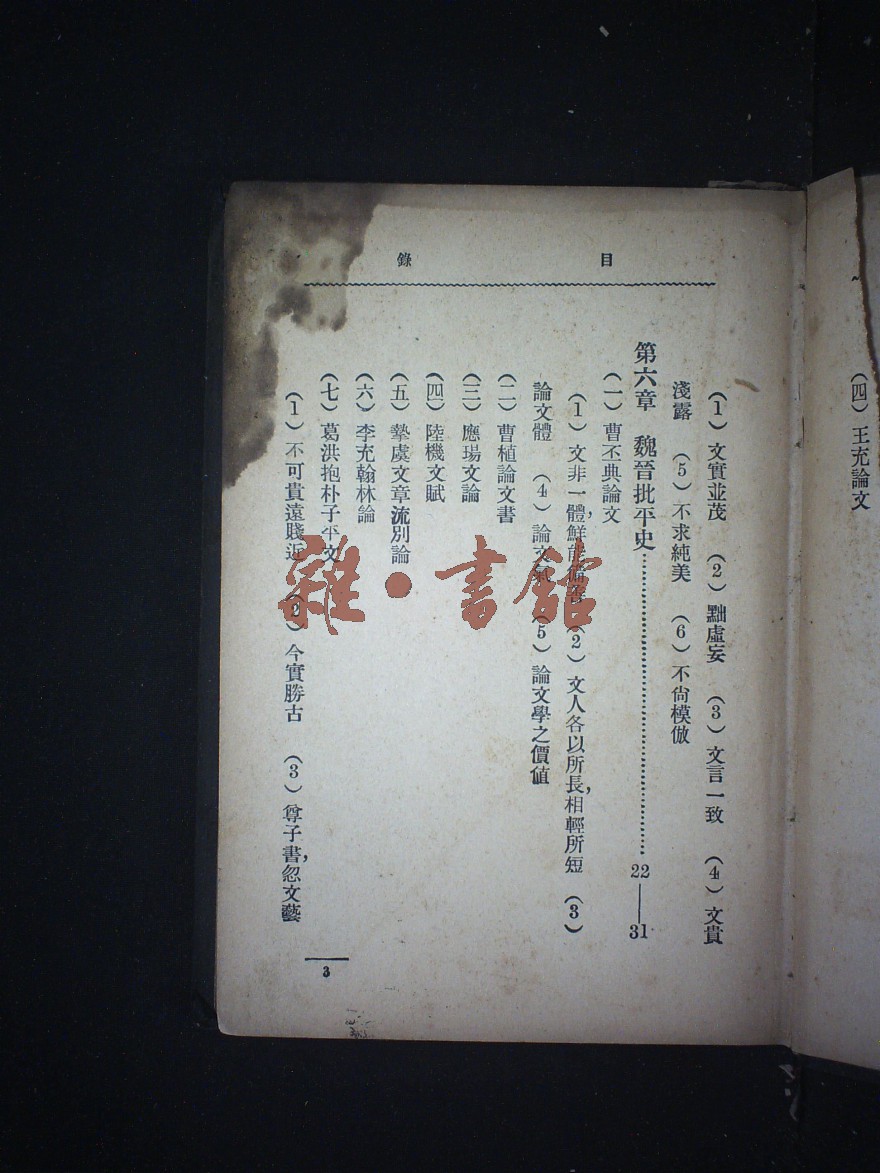 (四) 王充論文
目錄
(1) 文實並茂 (2) 黜虛妄 (3) 文言一致 (4) 文貴
淺露 (5) 不求純美 (6) 不尙模倣
第六章 魏晉批平史……22——31
(一) 曹丕典論文
(1) 文非一體,鮮能備善 (2) 文人各以所長,相輕所短 (3)
論文體 (4) 論文氣 (5) 論文學之價値
(二) 曹植論文書
(三) 應瑒文論
(四) 陸機文賦
(五) 摯虞文章流別論
(六) 李充翰林論
(七) 葛洪抱朴子平文
(1) 不可貴遠賤近 (2) 今實勝古 (3) 尊子書,忽文藝
3
雜·書館